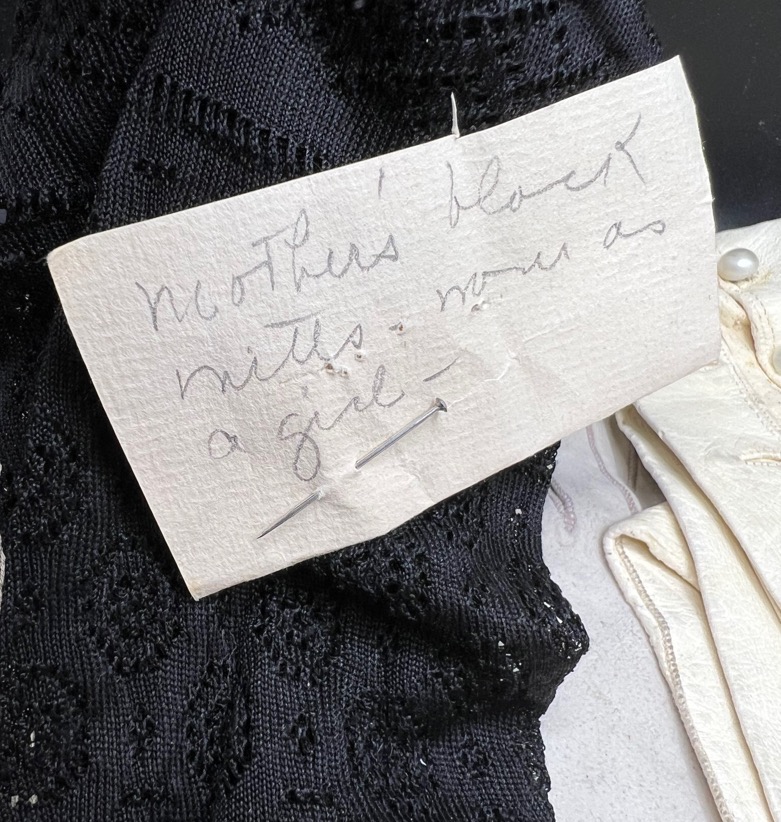 mother's black
mitts - worn as
a girl -